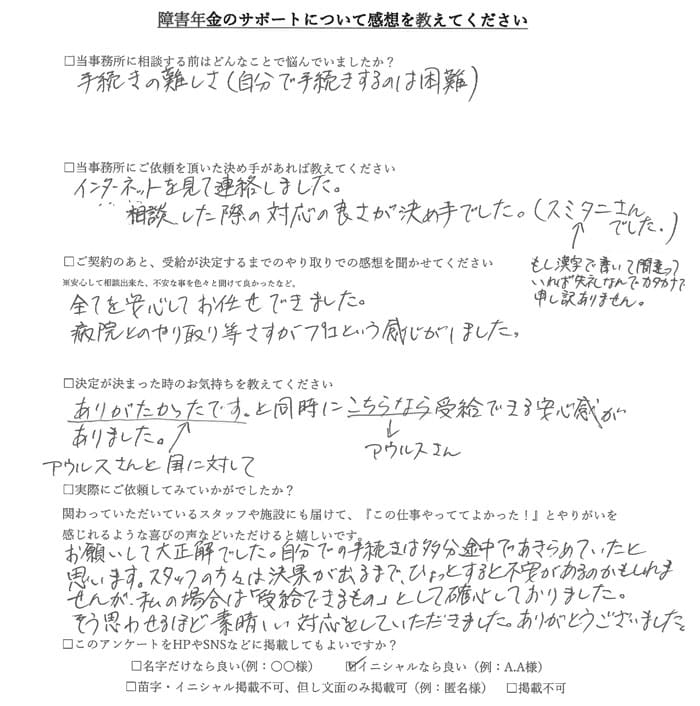 障害年金のサポートについて感想を教えてください
□当事務所に相談する前はどんなことで悩んでいましたか？
手続きの難しさ(自分で手続きするのは困難)
□当事務所にご依頼を頂いた決め手があれば教えてください
インターネットを見て連絡しました。
相談した際の対応の良さが決め手でした。(スミタニさんでした。)
もし漢字で書いて間違って
いれば失礼なんでカタカナで
申し訳ありません。
□ご契約のあと、受給が決定するまでのやり取りでの感想を聞かせてください
※安心して相談出来た、不安な事を色々と聞けて良かったなど。
全てを安心してお任せできました。
病院とのやり取り等さすがプロという感じがしました。
□決定が決まった時のお気持ちを教えてください
ありがたかったです。と同時にこちらなら受給できる安心感が
ありました。
アウルスさん
アウルスさんと国に対して
□実際にご依頼してみていかがでしたか？
関わっていただいているスタッフや施設にも届けて、『この仕事やっててよかった！』とやりがいを
感じれるような喜びの声などいただけると嬉しいです。
お願いして大正解でした。自分での手続きは多分途中であきらめていたと
思います。スタッフの方々は決果が出るまで、ひょっとすると不安があるのかもしれま
せんが、私の場合は「受給できるもの」として確心しておりました。
そう思わせるほど素晴しい対応をしていただきました。ありがとうございました。
□このアンケートをHPやSNSなどに掲載してもよいですか？
□名字だけなら良い(例：〇〇様) ☑イニシャルなら良い（例：A.A様）
□苗字・イニシャル掲載不可、但し文面のみ掲載可（例：匿名様） □掲載不可